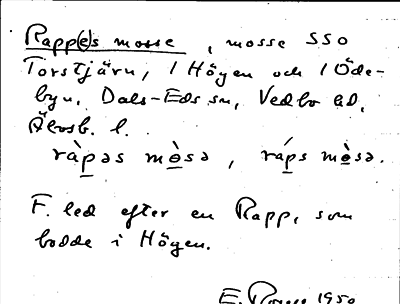 Rapp(e)s mosse, mosse SSO
Torstjärn, 1 Högen och 1 Öde-
byn, Dals-Eds sn, Vedbo hd,
Älvsb. l.
ràpəs mèsə, ráps mèsə.
F. led efter en Rapp, som
bodde i Högen.
E. 1950